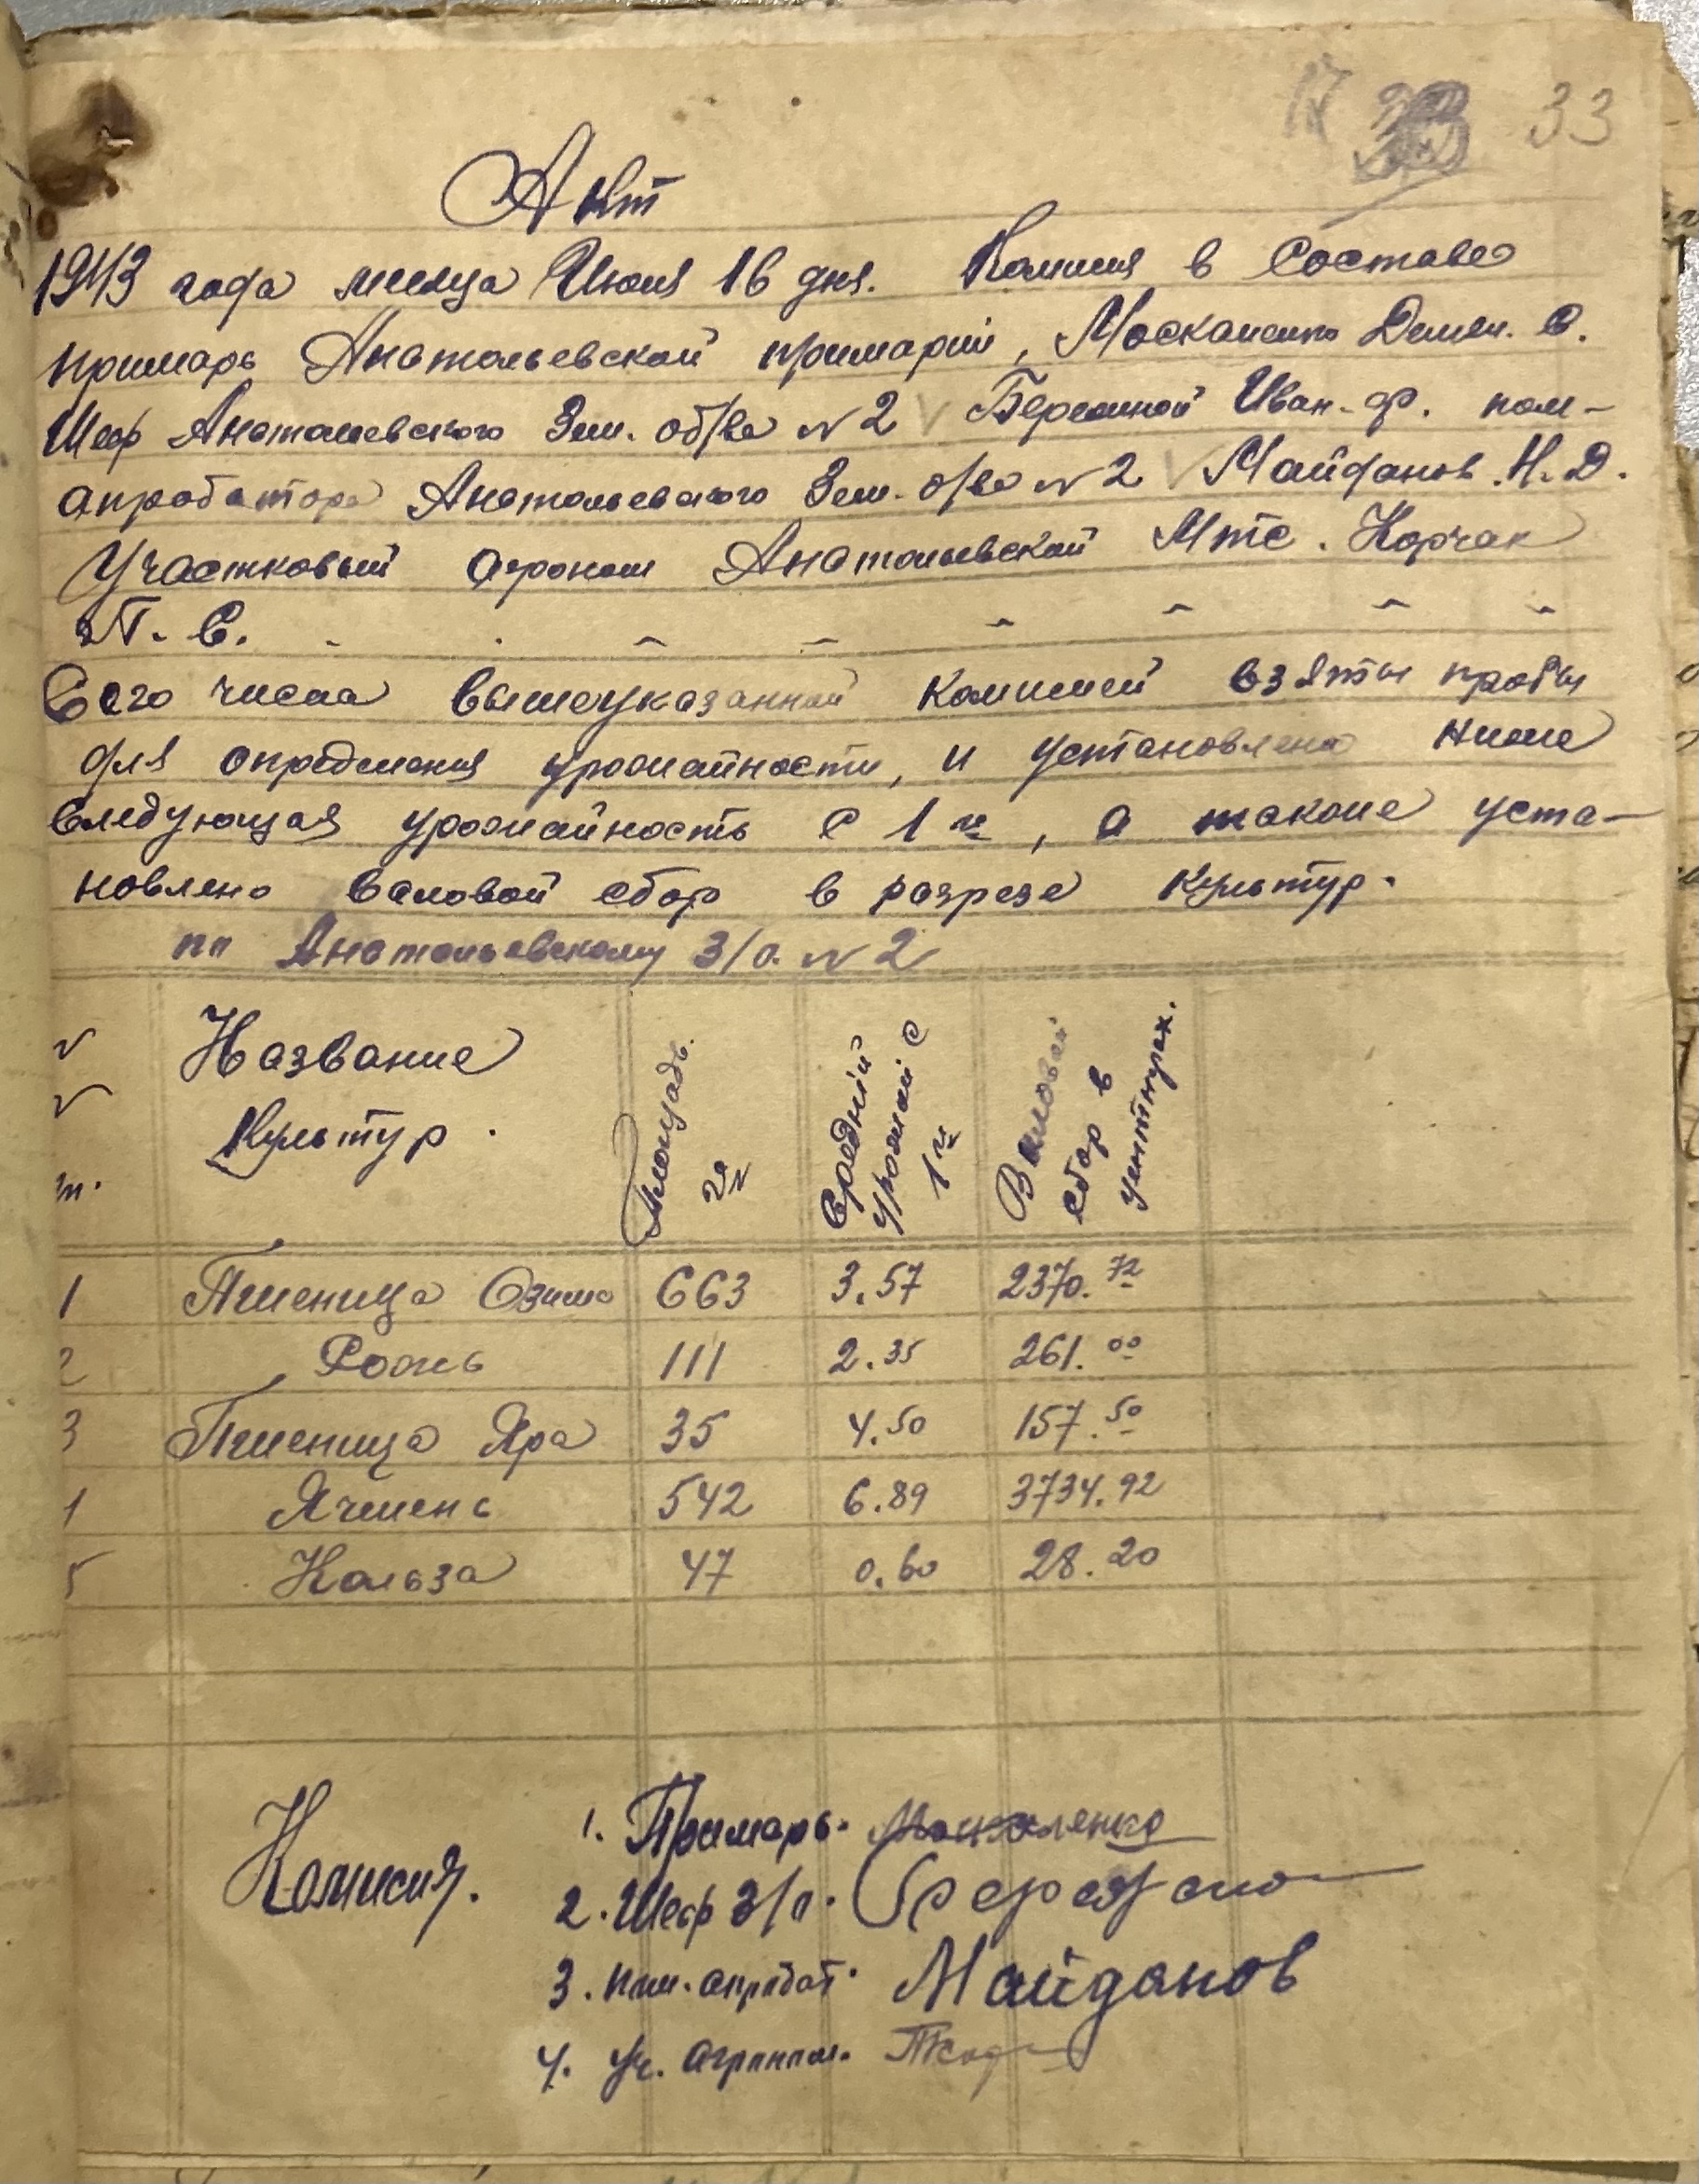 17 33
Акт
1943 года месяца Июня 16 дня. Комисия в Составе
примарь Анатольевской примарии, Москаленко Демян. С.
Шеф Анатольевского Зем. об/ва №2 Бережной Иван. ф. пом-
апробатора Анатольевского Зем. о/ва №2 Майданов. Н. Д.
Участковый агроном Анатольевской Мтс. Корчак
П. С.
Сего числа вышеуказанной комисией взяты пробы
для определения урожайности, и установлено ниже
следующая урожайность с 1 га, а также уста-
новлено валовой сбор в разрезе культур.
по Анатольевскому З/о. №2
№ № п. Название Культур. Площадь. га Средний урожай с 1 га Валовой сбор в центнерах.
1 Пшеница Озима 663 3.57 2370.72
2 Рожь 111 2.35 261.00
3 Пшеница Яра 35 4.50 157.50
1 Ячмень 542 6.89 3734.92
5 Кольза 47 0.60 28.20
Комисия.
1. Примарь. Москаленко
2. Шеф З/о.
3. пом. апробат. Майданов
4. Уч. агроном.